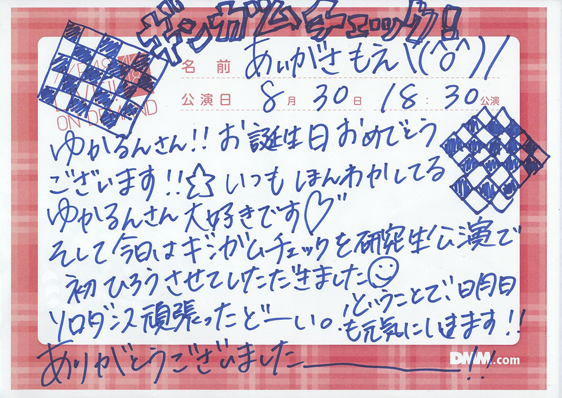 ギンガムチェック!
名前 あいがさもえ\(^o^)/
公演日 8月30日 18:30公演
ON DEMAND
ゆかるんさん!!お誕生日おめでとう
ございます!!☆いつもほんわかしてる
ゆかるんさん大好きです♡
そして今日はギンガムチェックを研究生公演で
初ひろうさせていただきました☺
ソロダンス頑張ったどーい。
ということで、明日
も元気にいきます!!
ありがとうございましたー!!
DMM.com